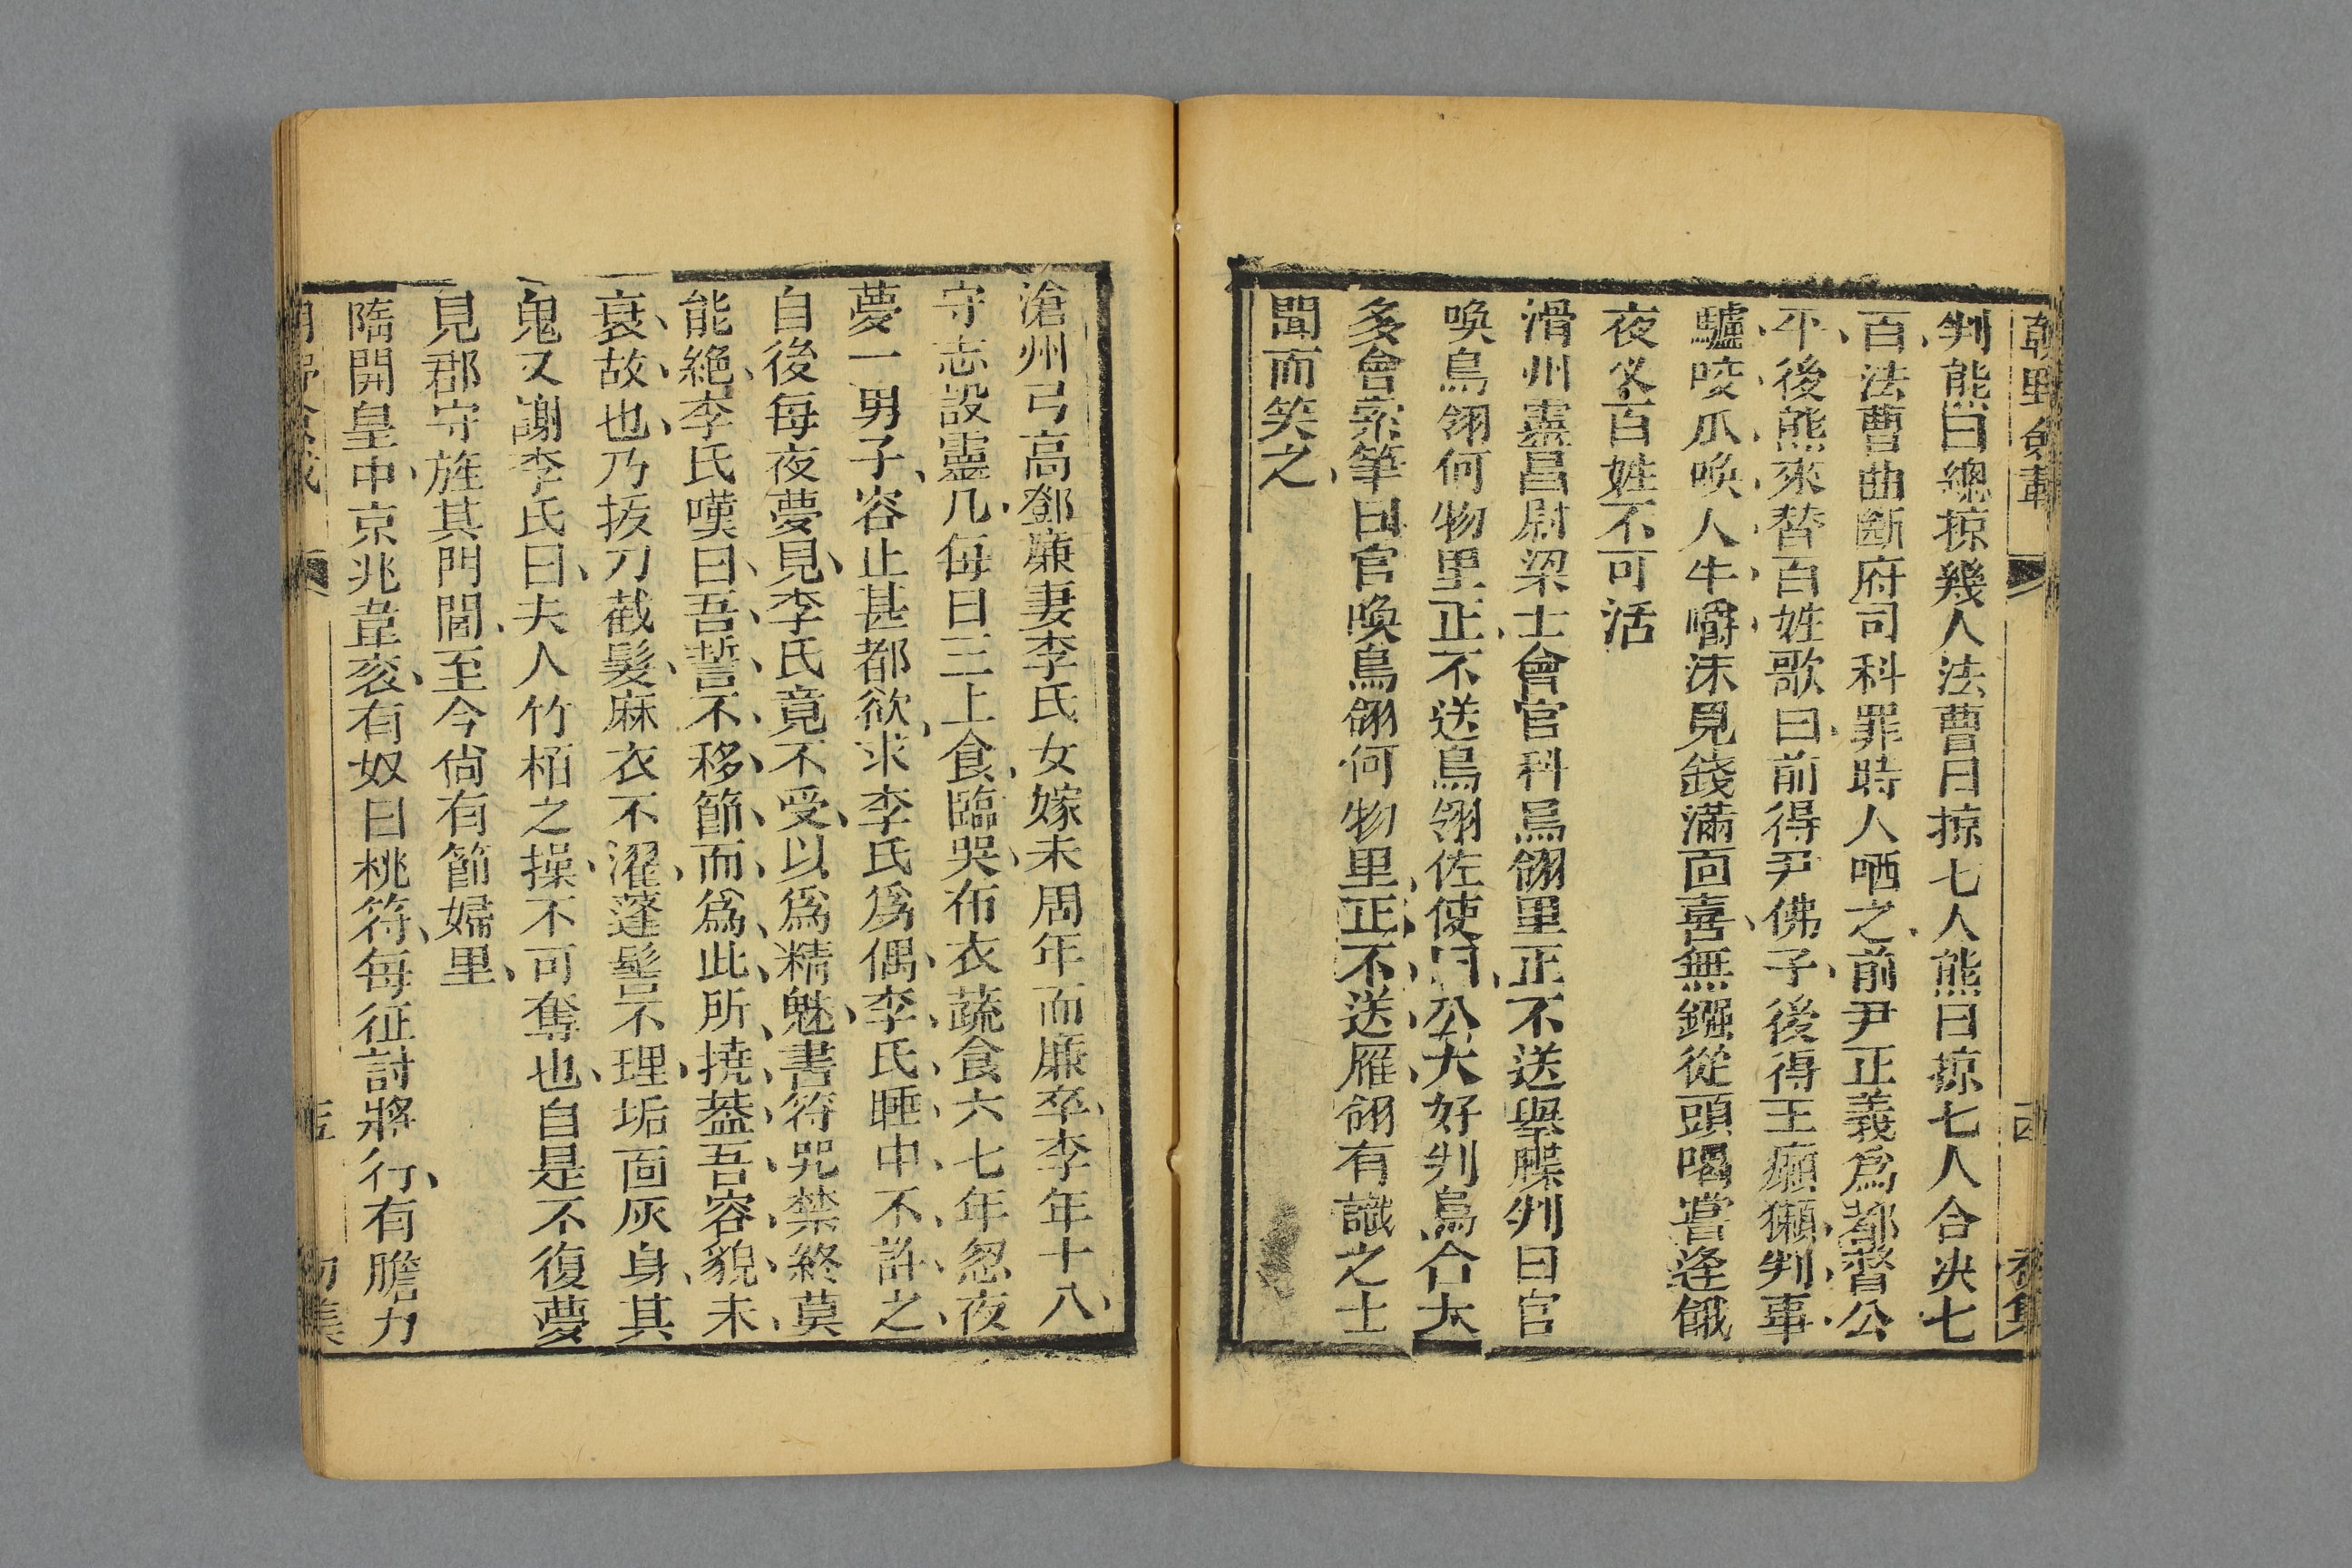 朝野僉載
判熊曰總掠幾人法曹曰掠七人熊曰掠七人合决七
百法曹曲斷府司科罪時人哂之前尹正義爲都督公
平後熊來替百姓歌曰前得尹佛子後得王癩獺判事
驢咬瓜喚人牛嚼沫見錢滿面喜無鏹從頭喝嘗逢餓
夜叉百姓不可活
滑州靈昌尉梁士會官科鳥翎里正不送舉牒判曰官
喚鳥翎何物里正不送鳥翎佐使曰公大好判鳥合大
多會索筆曰官喚鳥翎何物里正不送雁翎有識之士
聞而笑之
滄州弓高鄧廉妻李氏女嫁未周年而廉卒李年十八
守志設靈几每日三上食臨哭布衣蔬食六七年忽夜
夢一男子容止甚都欲求李氏爲偶李氏睡中不許之
自後每夜夢見李氏竟不受以爲精魅書符咒禁終莫
能絶李氏嘆曰吾誓不移節而爲此所撓葢吾容貌未
衰故也乃拔刀截髮麻衣不濯蓬髩不理垢面灰身其
鬼又謝李氏曰夫人竹栢之操不可奪也自是不復夢
見郡守旌其門閭至今尚有節婦里
隋開皇中京兆韋衮有奴曰桃符每征討將行有膽力